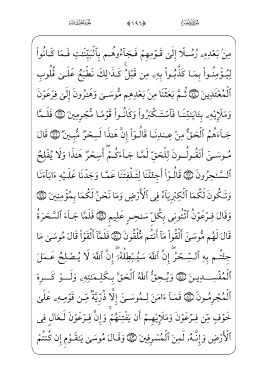 مِنۢ بَعْدِهِۦ رُسُلًا إِلَىٰ قَوْمِهِمْ فَجَآءُوهُم بِٱلْبَيِّنَـٰتِ فَمَا كَانُوا۟
لِيُؤْمِنُوا۟ بِمَا كَذَّبُوا۟ بِهِۦ مِن قَبْلُ ۚ كَذَٰلِكَ نَطْبَعُ عَلَىٰ قُلُوبِ
ٱلْمُعْتَدِينَ ۝ ثُمَّ بَعَثْنَا مِنۢ بَعْدِهِم مُّوسَىٰ وَهَـٰرُونَ إِلَىٰ فِرْعَوْنَ
وَمَلَإِي۟هِۦ بِـَٔايَـٰتِنَا فَٱسْتَكْبَرُوا۟ وَكَانُوا۟ قَوْمًا مُّجْرِمِينَ ۝ فَلَمَّا
جَآءَهُمُ ٱلْحَقُّ مِنْ عِندِنَا قَالُوٓا۟ إِنَّ هَـٰذَا لَسِحْرٌ مُّبِينٌ ۝ قَالَ
مُوسَىٰٓ أَتَقُولُونَ لِلْحَقِّ لَمَّا جَآءَكُمْ ۖ أَسِحْرٌ هَـٰذَا وَلَا يُفْلِحُ
ٱلسَّـٰحِرُونَ ۝ قَالُوٓا۟ أَجِئْتَنَا لِتَلْفِتَنَا عَمَّا وَجَدْنَا عَلَيْهِ ءَابَآءَنَا
وَتَكُونَ لَكُمَا ٱلْكِبْرِيَآءُ فِى ٱلْأَرْضِ وَمَا نَحْنُ لَكُمَا بِمُؤْمِنِينَ ۝
وَقَالَ فِرْعَوْنُ ٱئْتُونِى بِكُلِّ سَـٰحِرٍ عَلِيمٍ ۝ فَلَمَّا جَآءَ ٱلسَّحَرَةُ
قَالَ لَهُم مُّوسَىٰٓ أَلْقُوا۟ مَآ أَنتُم مُّلْقُونَ ۝ فَلَمَّآ أَلْقَوْا۟ قَالَ مُوسَىٰ مَا
جِئْتُم بِهِ ٱلسِّحْرُ ۖ إِنَّ ٱللَّهَ سَيُبْطِلُهُۥٓ ۖ إِنَّ ٱللَّهَ لَا يُصْلِحُ عَمَلَ
ٱلْمُفْسِدِينَ ۝ وَيُحِقُّ ٱللَّهُ ٱلْحَقَّ بِكَلِمَـٰتِهِۦ وَلَوْ كَرِهَ
ٱلْمُجْرِمُونَ ۝ فَمَآ ءَامَنَ لِمُوسَىٰٓ إِلَّا ذُرِّيَّةٌ مِّن قَوْمِهِۦ عَلَىٰ
خَوْفٍ مِّن فِرْعَوْنَ وَمَلَإِي۟هِمْ أَن يَفْتِنَهُمْ ۚ وَإِنَّ فِرْعَوْنَ لَعَالٍ فِى
ٱلْأَرْضِ وَإِنَّهُۥ لَمِنَ ٱلْمُسْرِفِينَ ۝ وَقَالَ مُوسَىٰ يَـٰقَوْمِ إِن كُنتُمْ